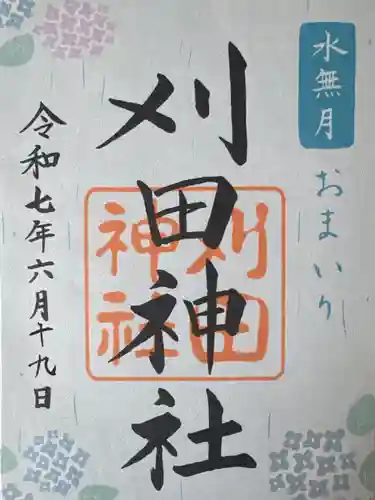 水無月
おまいり
刈田神社
刈田
神社
令和七年六月十九日